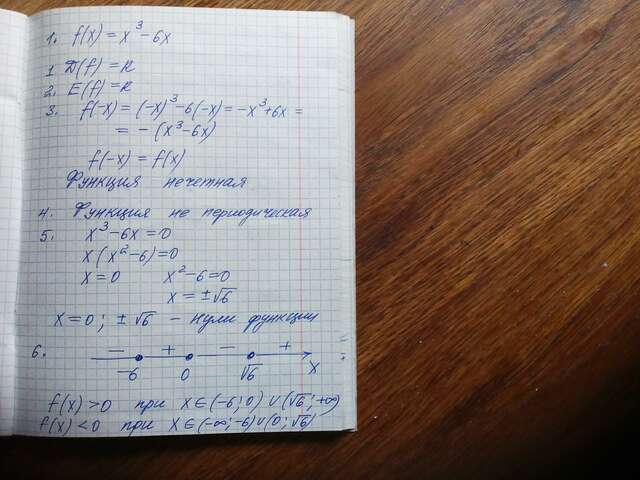 1. f(x) = x³ - 6x
1 D(f) = R
2. E(f) = R
3. f(-x) = (-x)³ - 6(-x) = -x³ + 6x =
= - (x³ - 6x)
f(-x) = f(x)
Функция нечетная
4. Функция не периодическая
5. x³ - 6x = 0
x(x² - 6) = 0
x = 0 x² - 6 = 0
x = ±√6
x = 0; ±√6 - нули функции
6. - + - +
-6 0 √6 x
f(x) > 0 при x ∈ (-6; 0) ∪ (√6; +∞)
f(x) < 0 при x ∈ (-∞; -6) ∪ (0; √6)